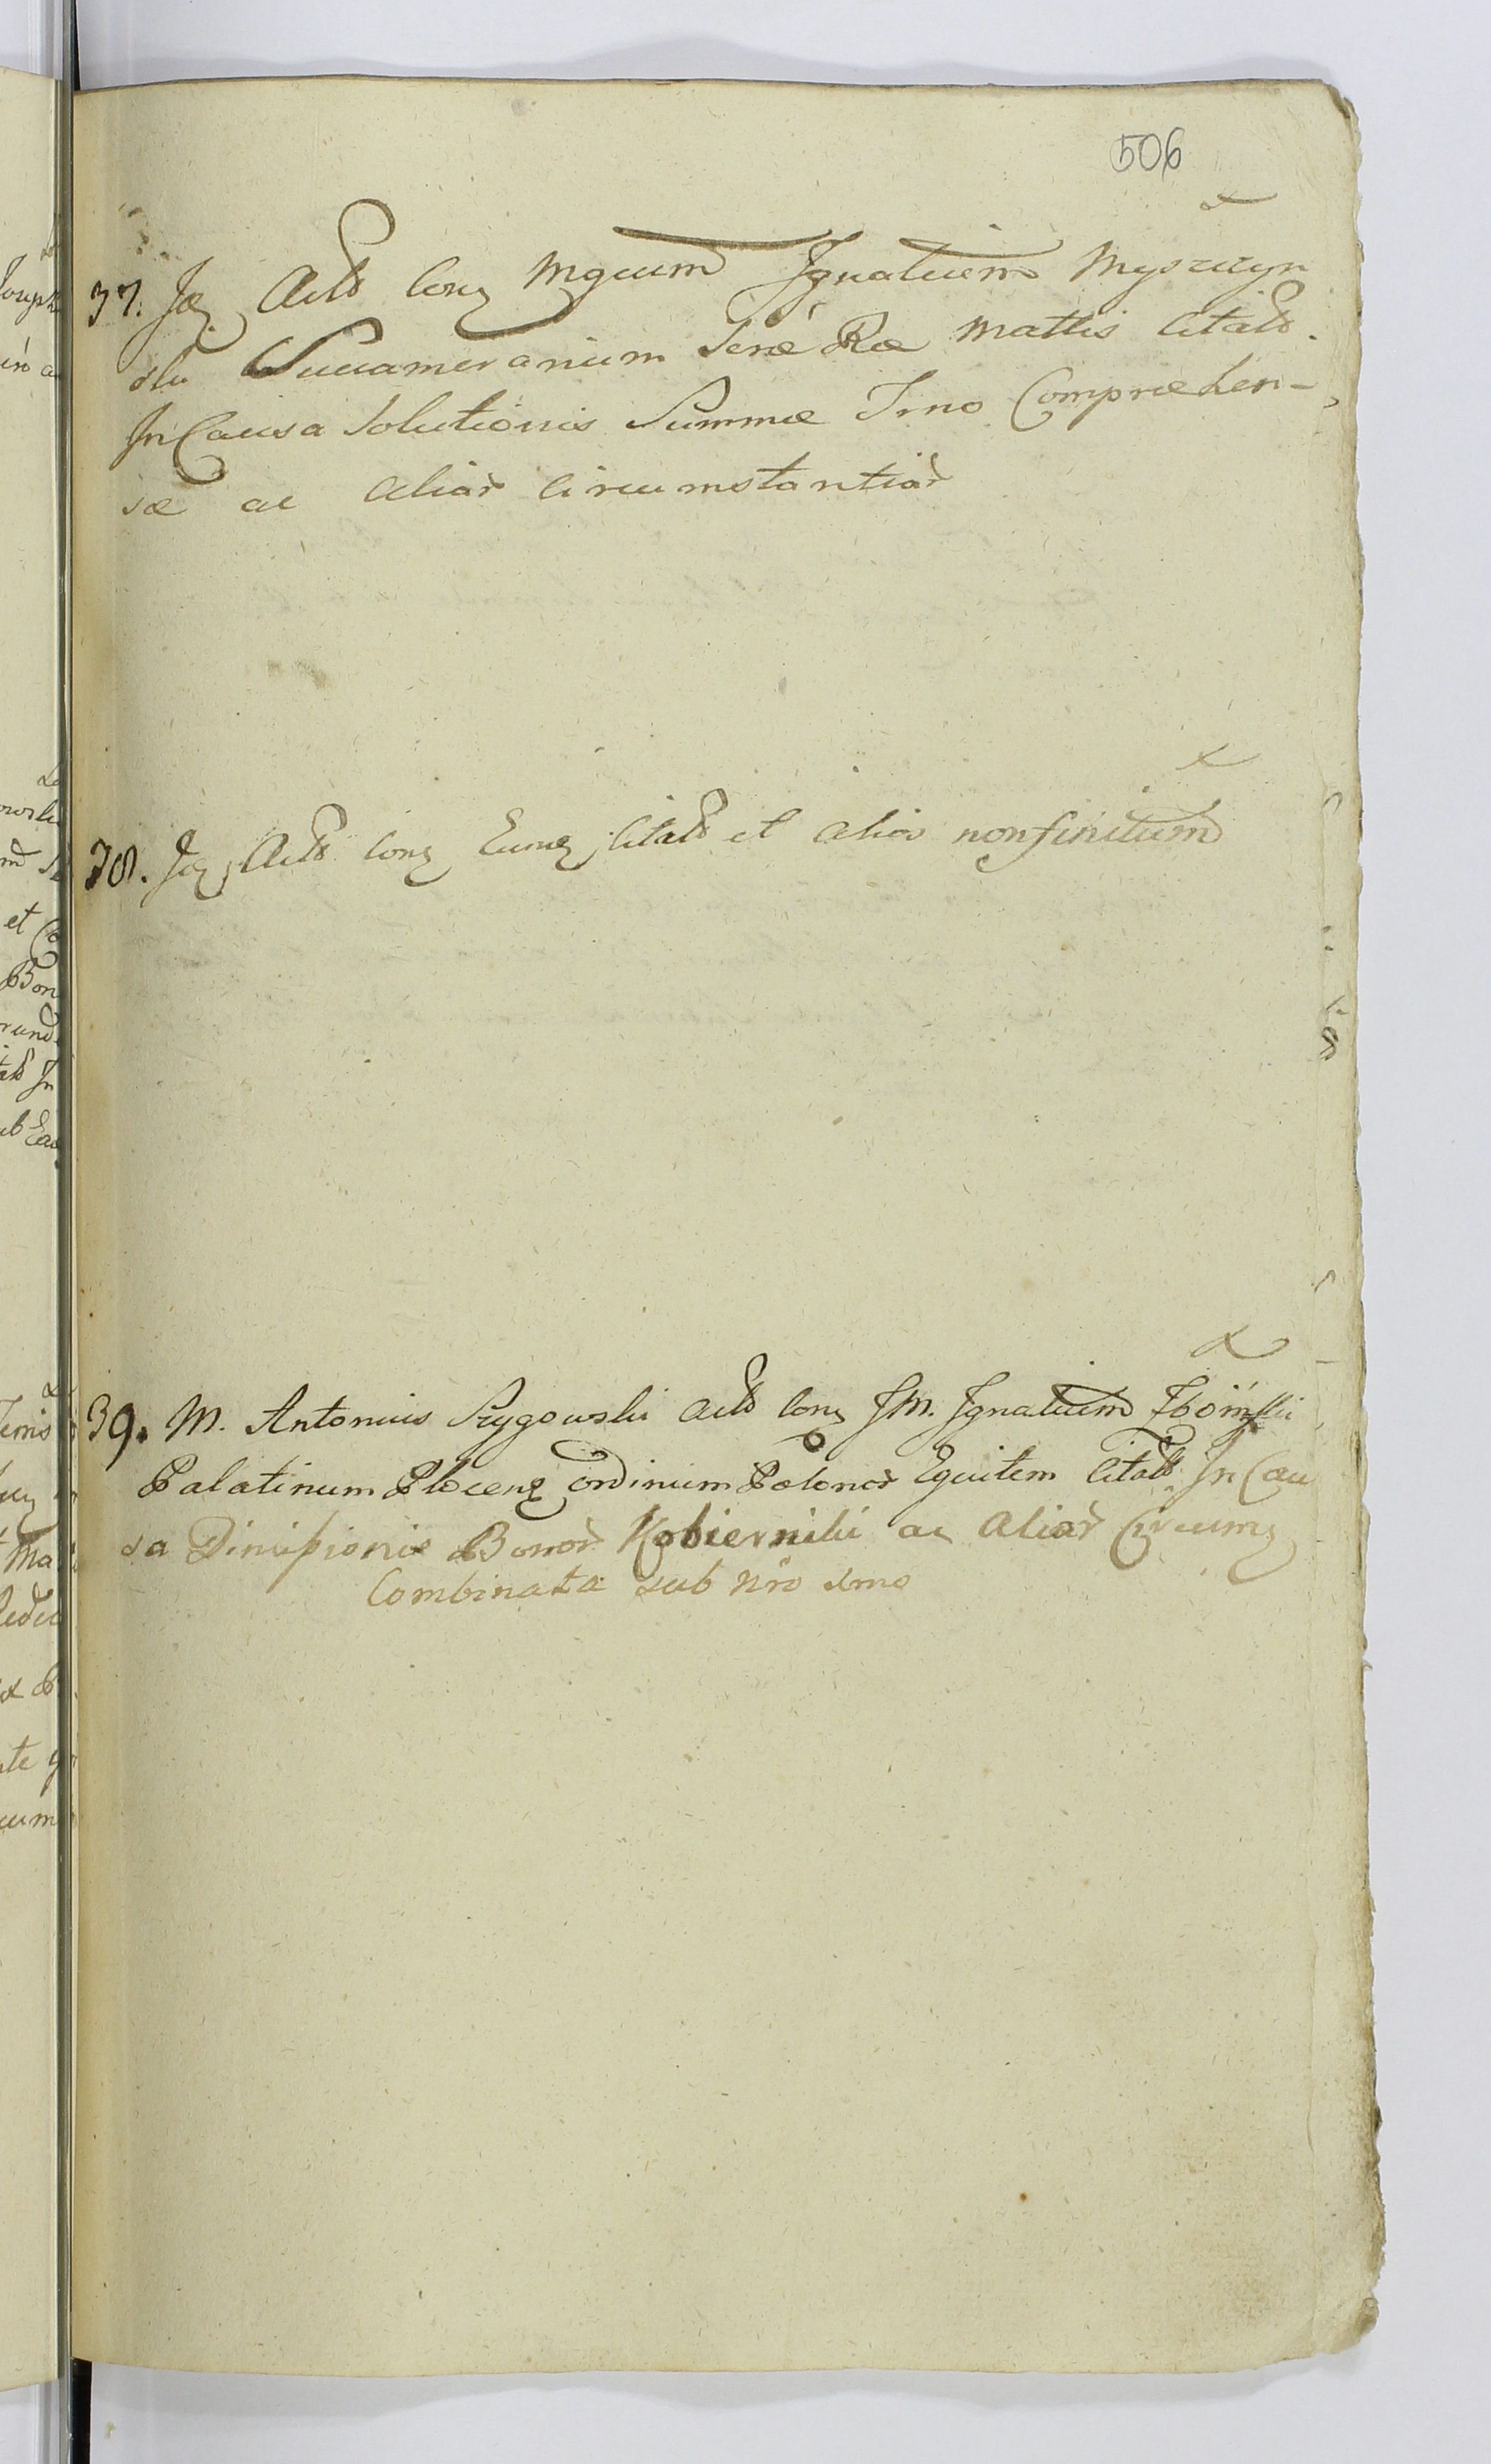 506
37. Jq Actb conq Mgcum Ignatium Myszczyn
ski Succamerarium Serae Rae Mattis Citatb.
In Causa Solutionis Summae Trno Compraehen-
sae ac Aliar circumstantiar
38. Jq Actb conq Eumq Citatb et alios non finitum
39. M. Antonius Szygowski Actb conq JM. Ignatium Zboiński
Palatinum Plocenq ordinum Polonor Equitem Citatb In Cau
sa Divisionis Bonor Kobierniki ac Aliar Circumq
Combinata sub Nro 2mo